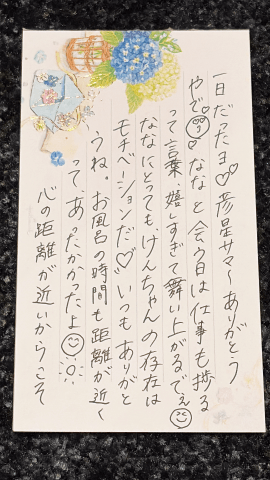 一日だったヨ♡彦星サマ〜ありがとう
やで😊♡ななと会う日は仕事も捗る
って言葉、嬉しすぎて舞い上がるでぇ😊
ななにとっても、けんちゃんの存在は
モチベーションだ♡いつもありがと
うね。お風呂の時間も距離が近く
って、あったかかったよ😊
心の距離が近いからこそ